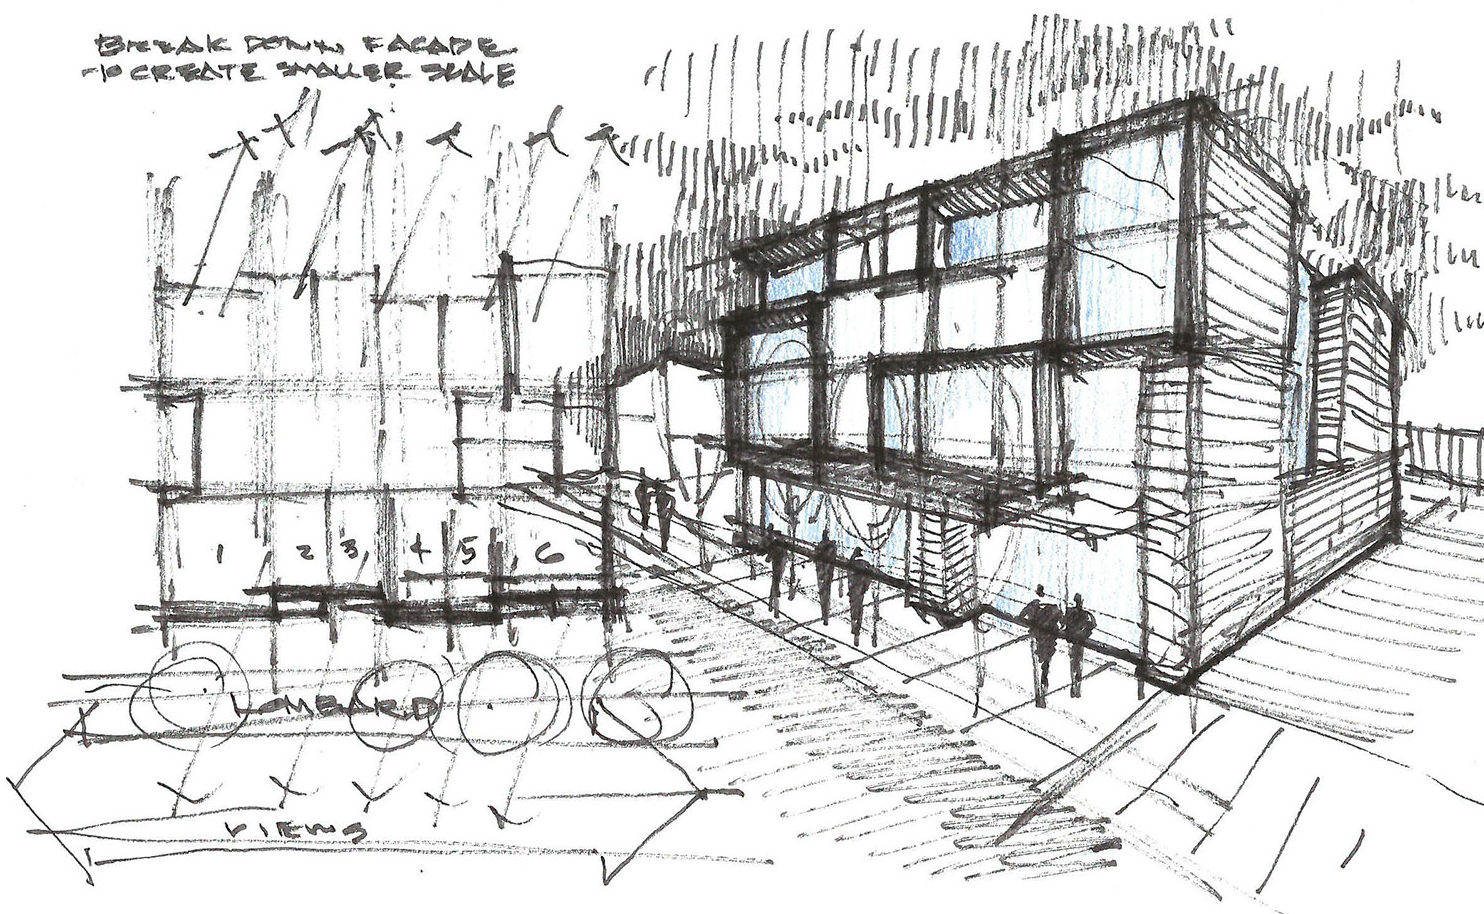 BREAK DOWN FACADE
TO CREATE SMALLER SCALE
1 2 3 4 5 6
LOMBARD
VIEWS